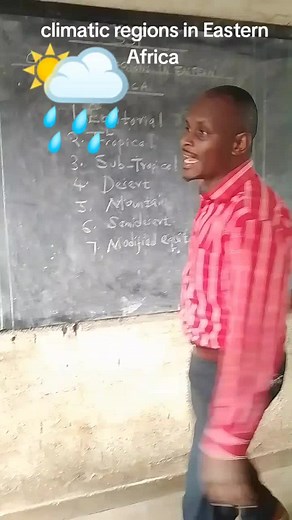 climatic regions in Eastern
Africa
IN EASTERN
1. Equatorial
2. Tropical
3. Sub-Tropical
4. Desert
5. Mountain
6. Semidesert
7. Modified equit